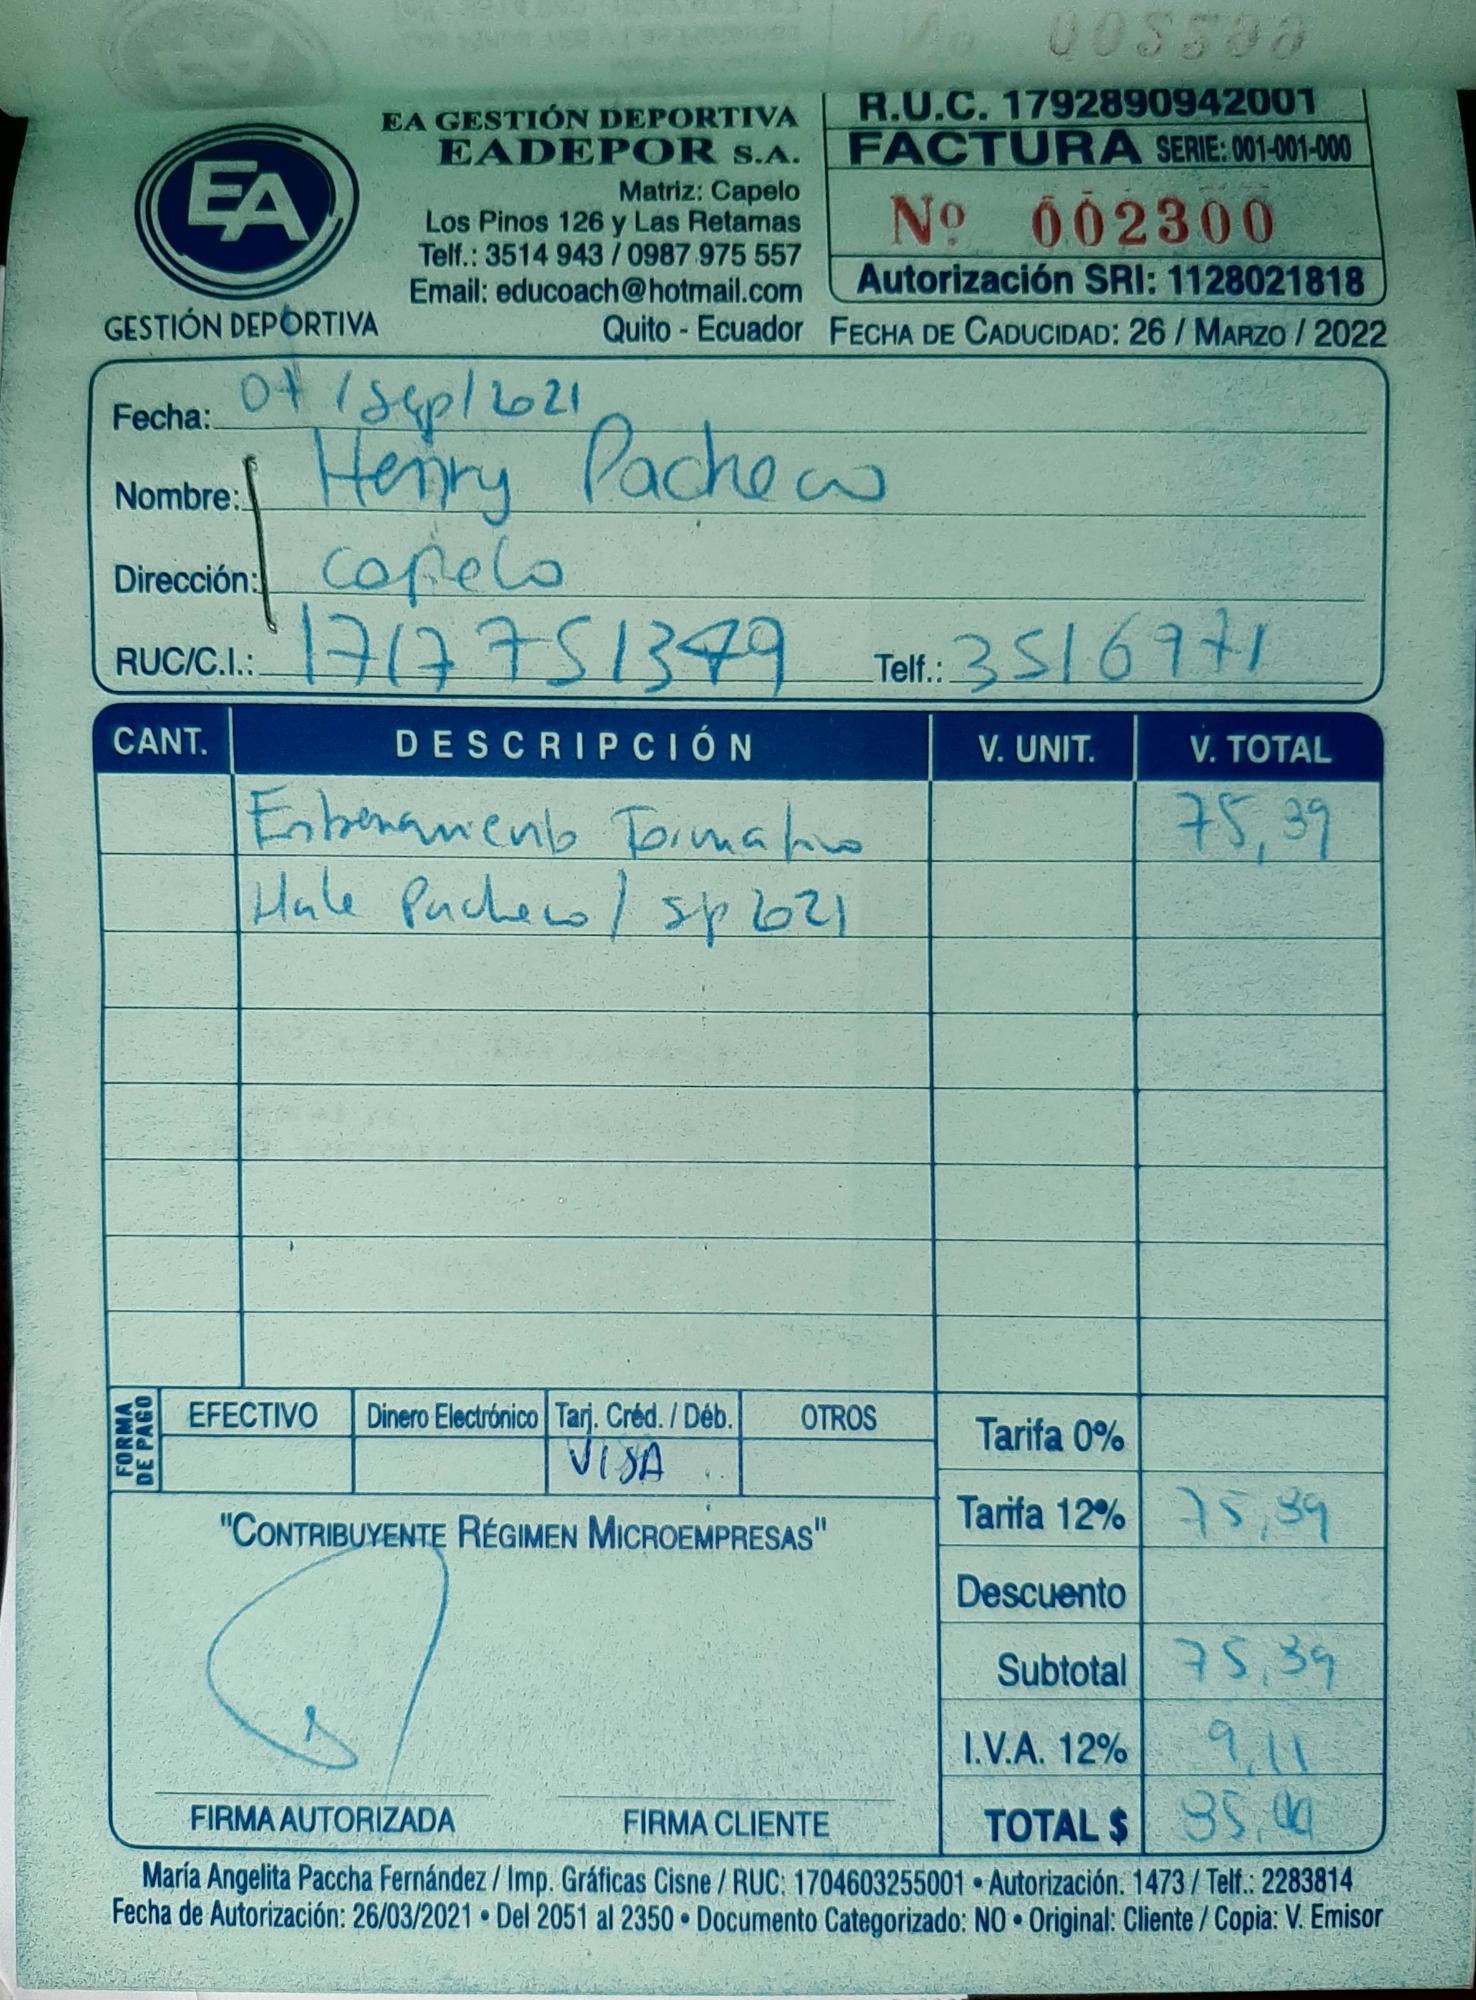 EA
GESTIÓN DEPORTIVA
EA GESTIÓN DEPORTIVA
EADEPOR S.A.
Matriz: Capelo
Los Pinos 126 y Las Retamas
Telf.: 3514 943 / 0987 975 557
Email: educoach@hotmail.com
Quito - Ecuador
R.U.C. 1792890942001
FACTURA SERIE: 001-001-000
Nº 002300
Autorización SRI: 1128021818
FECHA DE CADUCIDAD: 26 / MARZO / 2022
Fecha: 07 / Sep / 2021
Nombre: Henry Pacheco
Dirección: Capelo
RUC/C.I.: 1717751349 Telf.: 3516971
CANT. DESCRIPCIÓN V. UNIT. V. TOTAL
Entrenamiento Formativo 75,39
Pacheco / Sep 2021
FORMA DE PAGO
EFECTIVO Dinero Electrónico Tarj. Créd. / Déb. OTROS
VISA
Tarifa 0%
Tarifa 12% 75,39
Descuento
Subtotal 75,39
I.V.A. 12% 9,11
TOTAL $
"CONTRIBUYENTE RÉGIMEN MICROEMPRESAS"
FIRMA AUTORIZADA FIRMA CLIENTE
María Angelita Paccha Fernández / Imp. Gráficas Cisne / RUC: 1704603255001 • Autorización. 1473 / Telf.: 2283814
Fecha de Autorización: 26/03/2021 • Del 2051 al 2350 • Documento Categorizado: NO • Original: Cliente / Copia: V. Emisor